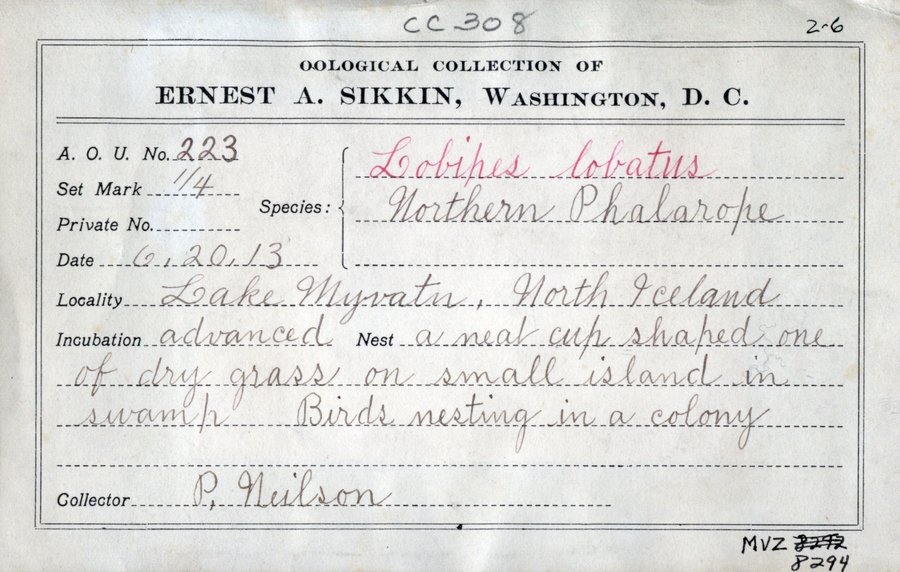 CC 308
2-6
OOLOGICAL COLLECTION OF
ERNEST A. SIKKIN, WASHINGTON, D. C.
A. O. U. No. 223
Set Mark 1/4
Private No.
Date 6, 20, 13
Species:
Lobipes lobatus
Northern Phalarope
Locality Lake Myvatn, North Iceland
Incubation advanced Nest a neat cup shaped one
of dry grass on small island in
swamp Birds nesting in a colony
Collector P. Neilson
MVZ 8292
8294